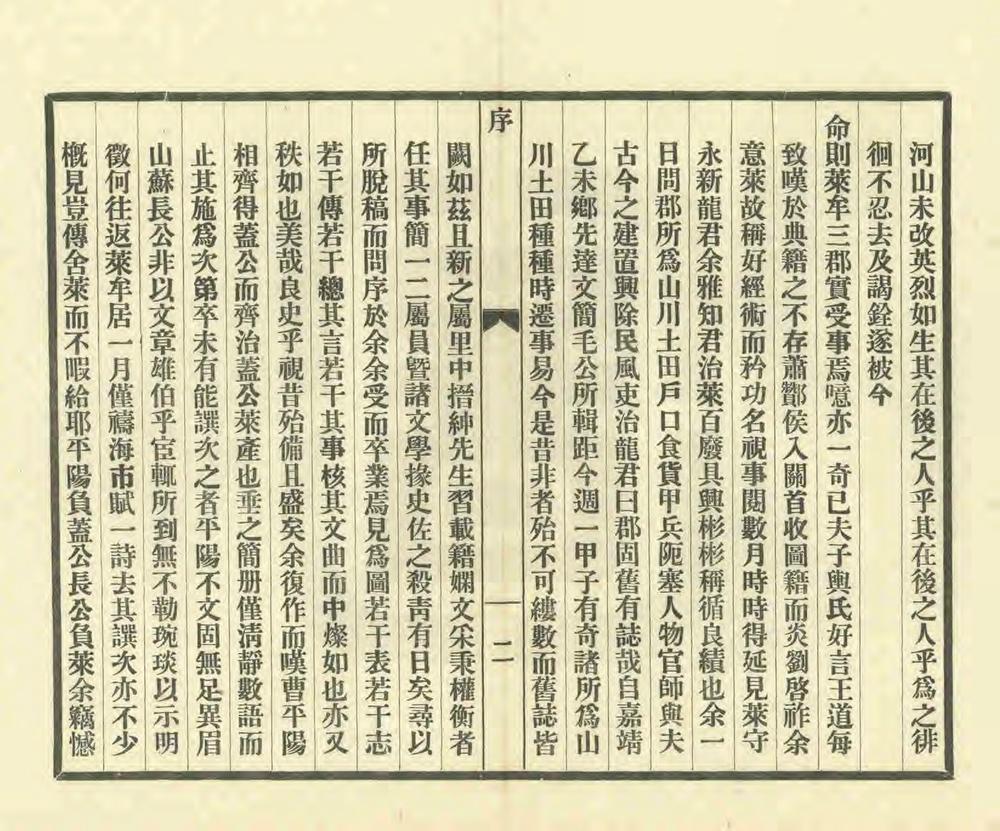 河山未改英烈如生其在後之人乎其在後之人乎爲之徘
徊不忍去及謁銓逐被今
命則萊牟三郡實受事焉噫亦一奇已夫子輿氏好言王道每
致嘆於典籍之不存蕭酇侯入關首收圖籍而炎劉啓祚余
意萊故稱好經術而矜功名視事閱數月時時得延見萊守
永新龍君余雅知君治萊百廢具興彬彬稱循良績也余一
日問郡所爲山川土田戶口食貨甲兵阨塞人物官師與夫
古今之建置興除民風吏治龍君曰郡固舊有誌哉自嘉靖
乙未鄉先達文簡毛公所輯距今週一甲子有奇諸所爲山
川土田種種時遷事易今是昔非者殆不可縷數而舊誌皆
序
二
闕如茲且新之屬里中搢紳先生習載籍嫻文采秉權衡者
任其事簡一二屬員曁諸文學掾史佐之殺靑有日矣尋以
所脫稿而問序於余余受而卒業焉見爲圖若干表若干志
若干傳若干總其言若干其事核其文曲而中燦如也亦又
秩如也美哉良史乎視昔殆備且盛矣余復作而嘆曹平陽
相齊得蓋公而齊治蓋公萊產也垂之簡册僅淸靜數語而
止其施爲次第卒未有能譔次之者平陽不文固無足異眉
山蘇長公非以文章雄伯乎宦轍所到無不勒琬琰以示明
徵何往返萊牟居一月僅禱海市賦一詩去其譔次亦不少
槪見豈傳舍萊而不暇給耶平陽負蓋公長公負萊余竊憾